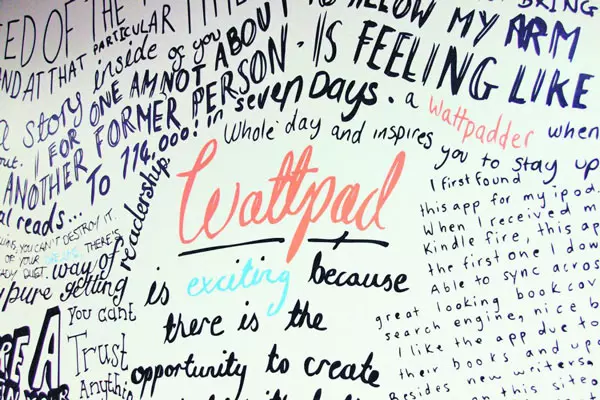 BRING
ED OF THE
THAT PARTICULAR TIME
AND AT THAT
ALLOW MY ARM
IS FEELING LIKE
a story inside of you
I FOR ONE AM NOT ABOUT
ANOTHER FORMER PERSON.
TO 114,000! in seven Days.
a Wattpadder when
out.
Whole day and inspires
you to stay up
al reads...
readership.
YOU CAN'T DESTROY IT.
OF YOUR DREAMS. THERE'S
DUST.
way of
pure getting
Wattpad
is exciting because
there is the
opportunity to create
You cant
Trust
Anythin
RE A
I first found
this app for my ipod.
When I received m
Kindle fire, this ap
the first one I dow
Able to sync acros
great looking book cov
search engine, nice b
I like the app due to
their books and upd
Besides new writers
on this site